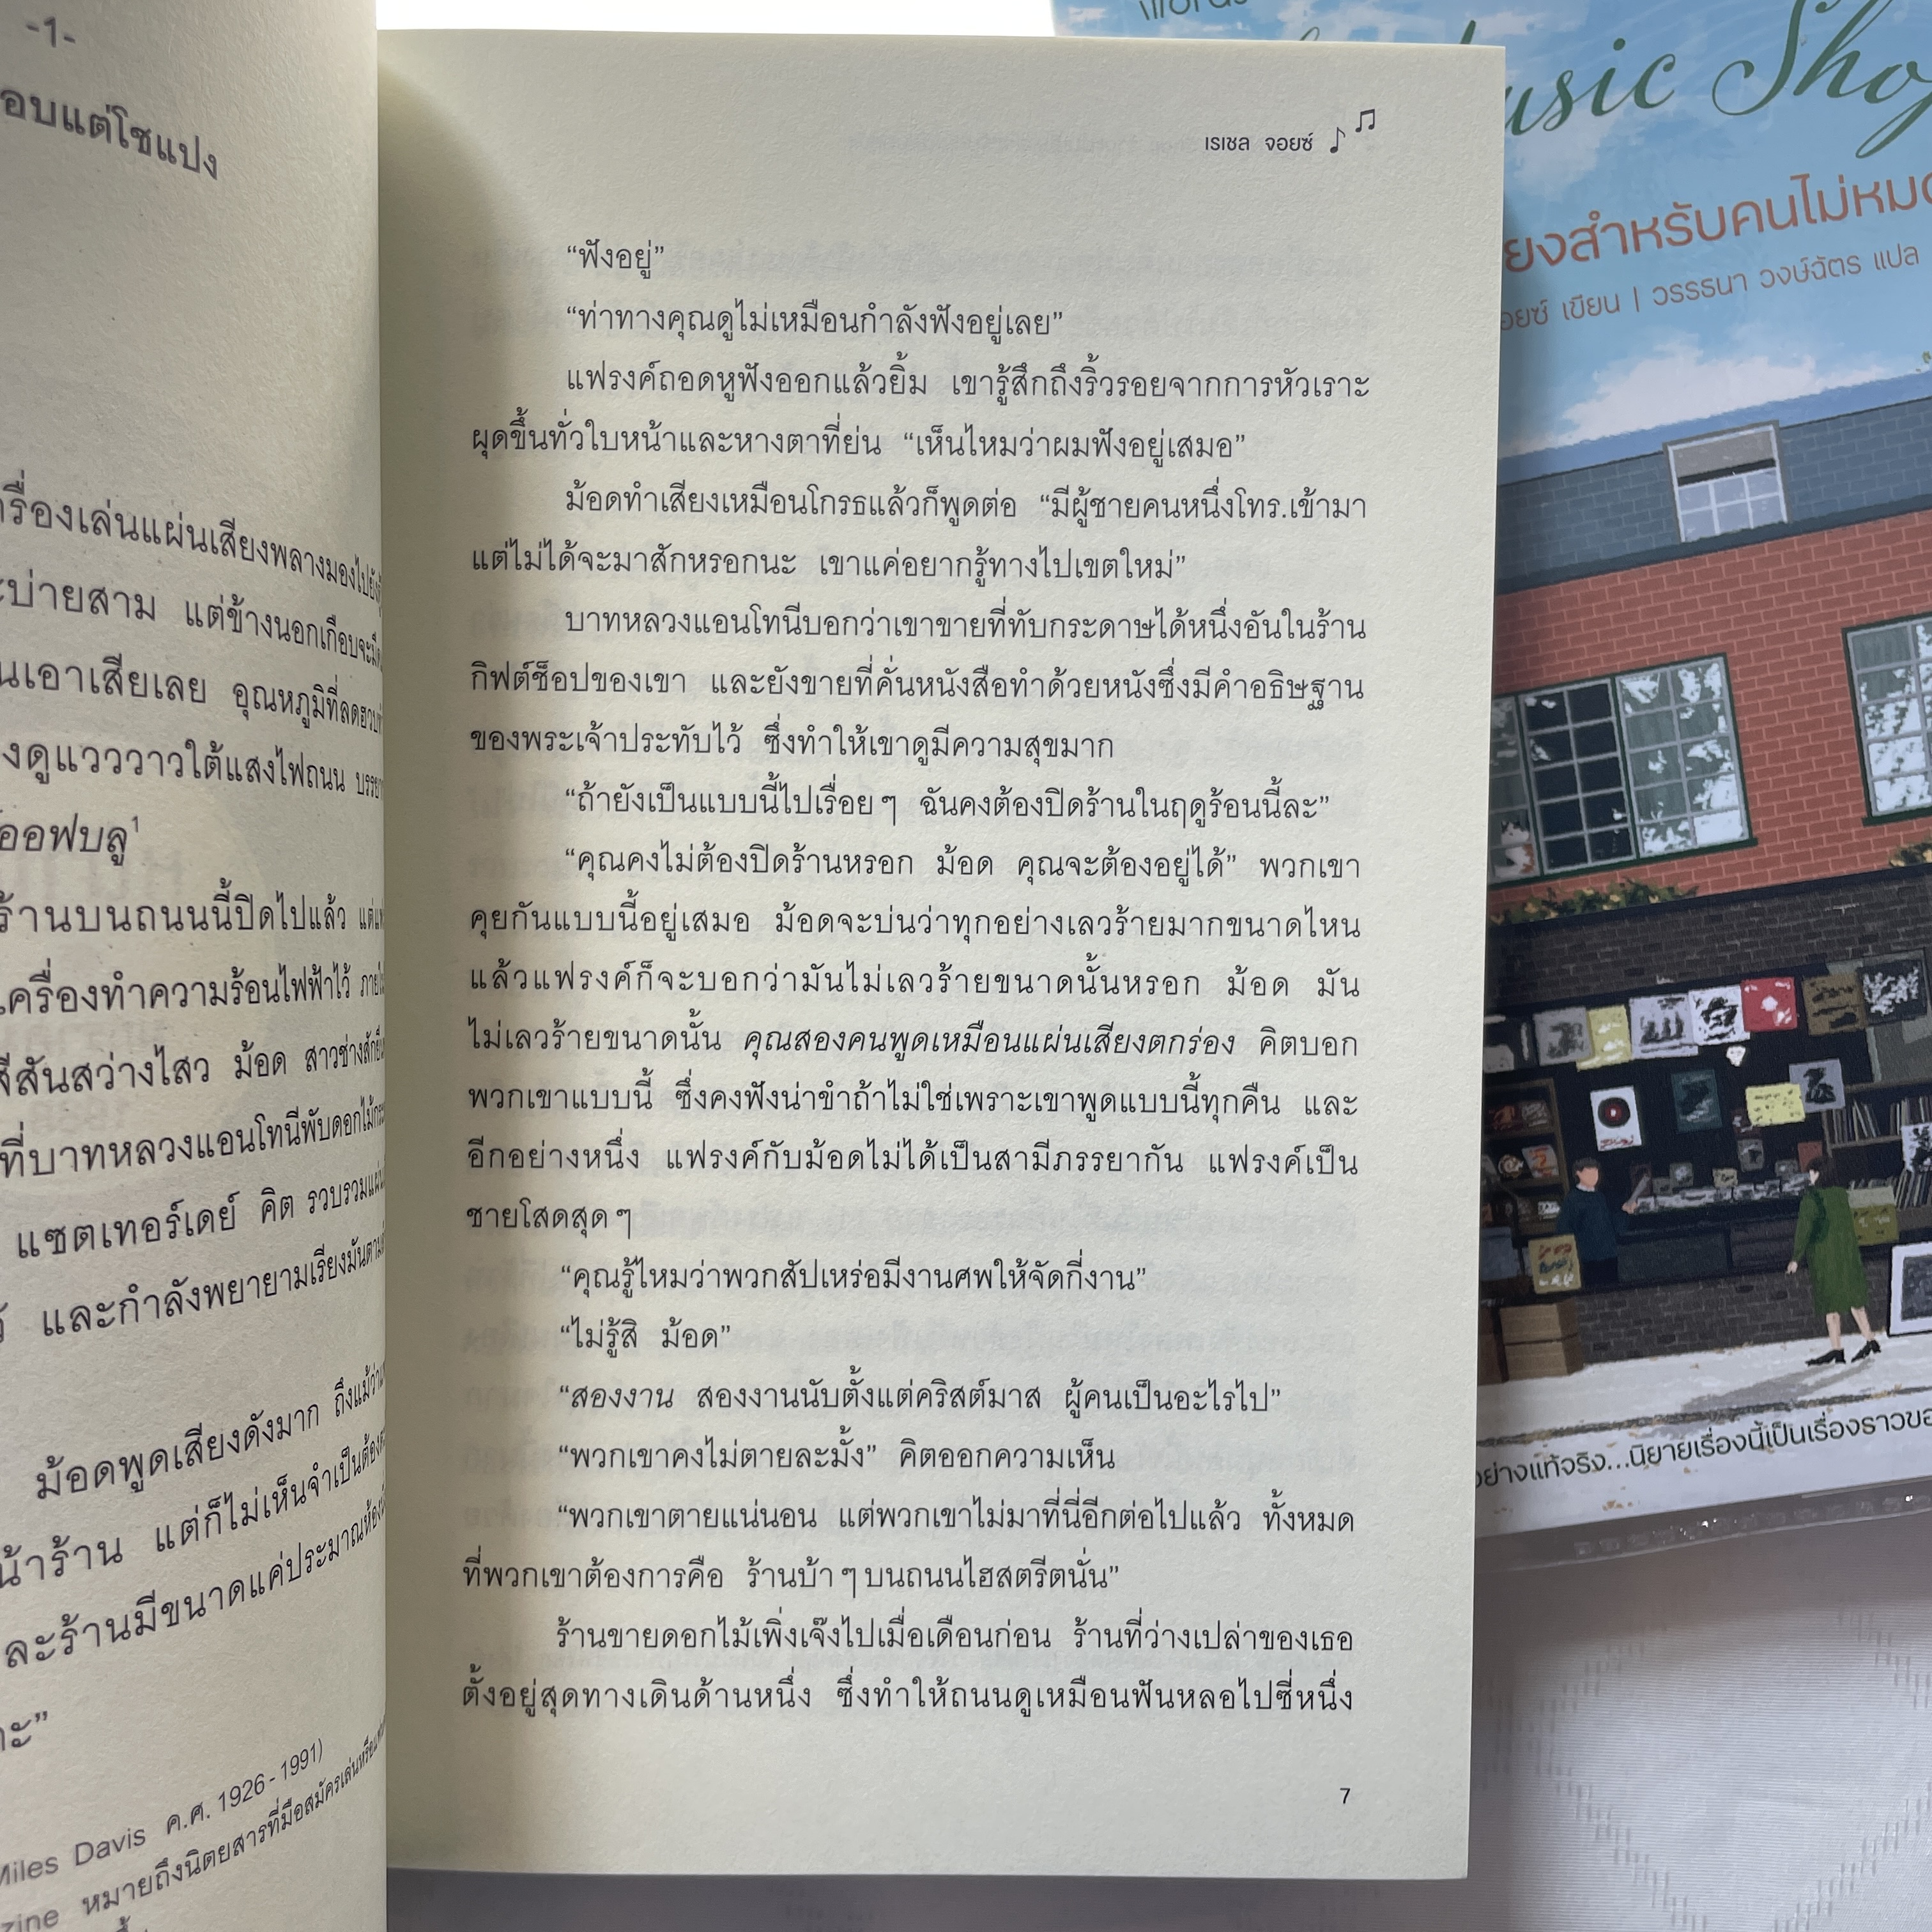 -1-
อบแต่โชแปง
รื่องเล่นแผ่นเสียงพลางมองไปยัง
ะบ่ายสาม แต่ข้างนอกเกือบจะมืด
นเอาเสียเลย อุณหภูมิที่ลดฮวบ
งดูแวววาวใต้แสงไฟถนน
ออฟบลู¹
ร้านบนถนนนี้ปิดไปแล้ว
เครื่องทำความร้อนไฟฟ้าไว้
สีสันสว่างไสว ม้อด สาวช่างสัก
ที่บาทหลวงแอนโทนีพับดอกไม้
แซตเทอร์เดย์ คิต รวบรวมแผ่น
และกำลังพยายามเรียงมันตาม
ม้อดพูดเสียงดังมาก ถึงแม้ว่า
น้าร้าน แต่ก็ไม่เห็นจำเป็นต้อง
ละร้านมีขนาดแค่ประมาณห้อง
าะ”
Miles Davis ค.ศ. 1926 - 1991)
zine หมายถึงนิตยสารที่มือสมัครเล่น
เรเชล จอยซ์
“ฟังอยู่”
“ท่าทางคุณดูไม่เหมือนกำลังฟังอยู่เลย”
แฟรงค์ถอดหูฟังออกแล้วยิ้ม เขารู้สึกถึงริ้วรอยจากการหัวเราะ
ผุดขึ้นทั่วใบหน้าและหางตาที่ย่น “เห็นไหมว่าผมฟังอยู่เสมอ”
ม้อดทำเสียงเหมือนโกรธแล้วก็พูดต่อ “มีผู้ชายคนหนึ่งโทร.เข้ามา
แต่ไม่ได้จะมาสักหรอกนะ เขาแค่อยากรู้ทางไปเขตใหม่”
บาทหลวงแอนโทนีบอกว่าเขาขายที่ทับกระดาษได้หนึ่งอันในร้าน
กิฟต์ช็อปของเขา และยังขายที่คั่นหนังสือทำด้วยหนังซึ่งมีคำอธิษฐาน
ของพระเจ้าประทับไว้ ซึ่งทำให้เขาดูมีความสุขมาก
“ถ้ายังเป็นแบบนี้ไปเรื่อยๆ ฉันคงต้องปิดร้านในฤดูร้อนนี้ละ”
“คุณคงไม่ต้องปิดร้านหรอก ม้อด คุณจะต้องอยู่ได้” พวกเขา
คุยกันแบบนี้อยู่เสมอ ม้อดจะบ่นว่าทุกอย่างเลวร้ายมากขนาดไหน
แล้วแฟรงค์ก็จะบอกว่ามันไม่เลวร้ายขนาดนั้นหรอก ม้อด มัน
ไม่เลวร้ายขนาดนั้น คุณสองคนพูดเหมือนแผ่นเสียงตกร่อง คิตบอก
พวกเขาแบบนี้ ซึ่งคงฟังน่าขำถ้าไม่ใช่เพราะเขาพูดแบบนี้ทุกคืน และ
อีกอย่างหนึ่ง แฟรงค์กับม้อดไม่ได้เป็นสามีภรรยากัน แฟรงค์เป็น
ชายโสดสุดๆ
“คุณรู้ไหมว่าพวกสัปเหร่อมีงานศพให้จัดกี่งาน”
“ไม่รู้สิ ม้อด”
“สองงาน สองงานนับตั้งแต่คริสต์มาส ผู้คนเป็นอะไรไป”
“พวกเขาคงไม่ตายละมั้ง” คิตออกความเห็น
“พวกเขาตายแน่นอน แต่พวกเขาไม่มาที่นี่อีกต่อไปแล้ว ทั้งหมด
ที่พวกเขาต้องการคือ ร้านบ้าๆบนถนนไฮสตรีตนั่น”
ร้านขายดอกไม้เพิ่งเจ๊งไปเมื่อเดือนก่อน ร้านที่ว่างเปล่าของเธอ
ตั้งอยู่สุดทางเดินด้านหนึ่ง ซึ่งทำให้ถนนดูเหมือนฟันหลอไปซี่หนึ่ง
7
usic Shop
ยงสำหรับคนไม่หมด
อยซ์ เขียน | วรรธนา วงษ์ฉัตร แปล
อย่างแท้จริง...นิยายเรื่องนี้เป็นเรื่องราวขอ